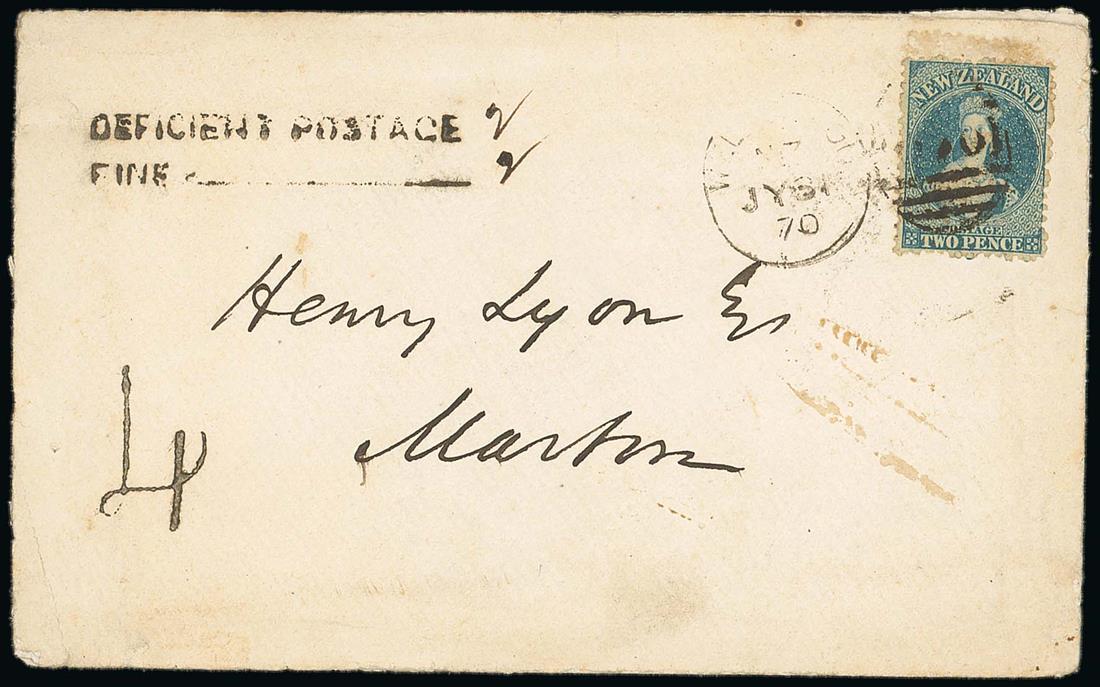 DEFICIENT POSTAGE 2
FINE 2
NZ
JY 31
70
NEW ZEALAND
POSTAGE
TWO PENCE
Henry Lyon Esq
Marton
4